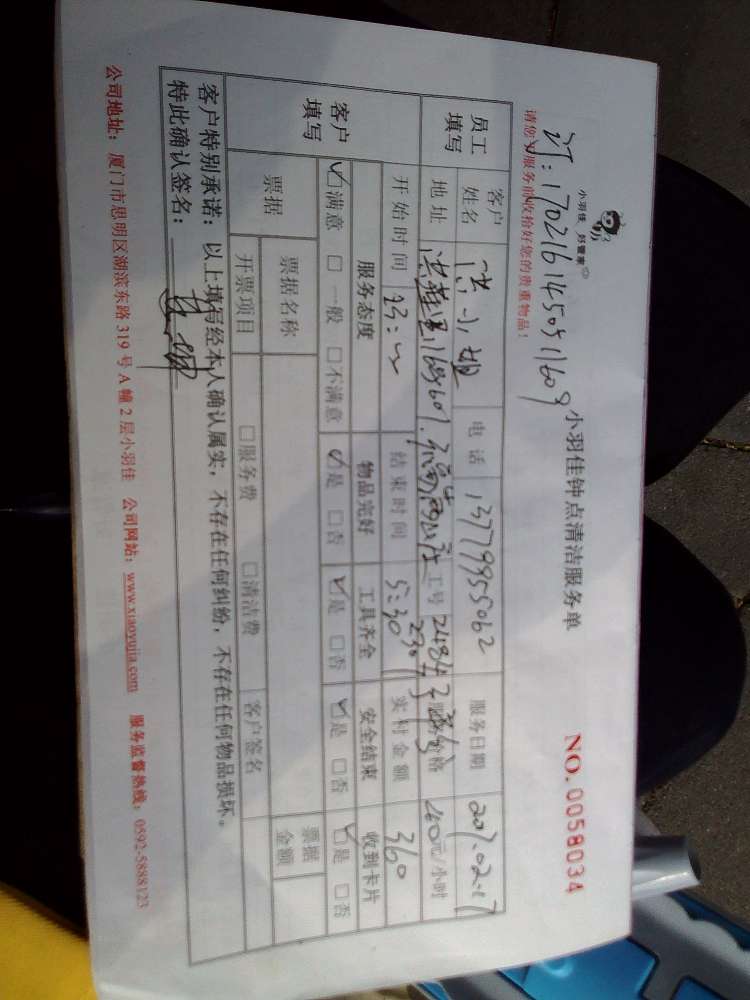 小羽佳 好管家
小羽佳钟点清洁服务单
NO.0058034
请您对服务前收拾好您的贵重物品！
员工填写
客户姓名 洪小姐 电话 13779955062 服务日期 2017.02.17
地址 工号 服务价格 元/小时
开始时间 结束时间 5:30 实付金额 360
客户填写
服务态度 物品完好 工具齐全 安全结束 收到卡片
☑满意 □一般 □不满意 ☑是 □否 ☑是 □否 ☑是 □否 ☑是 □否
票据 票据名称 票据金额
开票项目 □服务费 □清洁费 客户签名
客户特别承诺：以上填写经本人确认属实，不存在任何纠纷，不存在任何物品损坏。
特此确认签名：
公司地址：厦门市思明区湖滨东路 319 号 A 幢 2 层小羽佳 公司网站：www.xiaoyujia.com 服务监督热线：0592-5888123